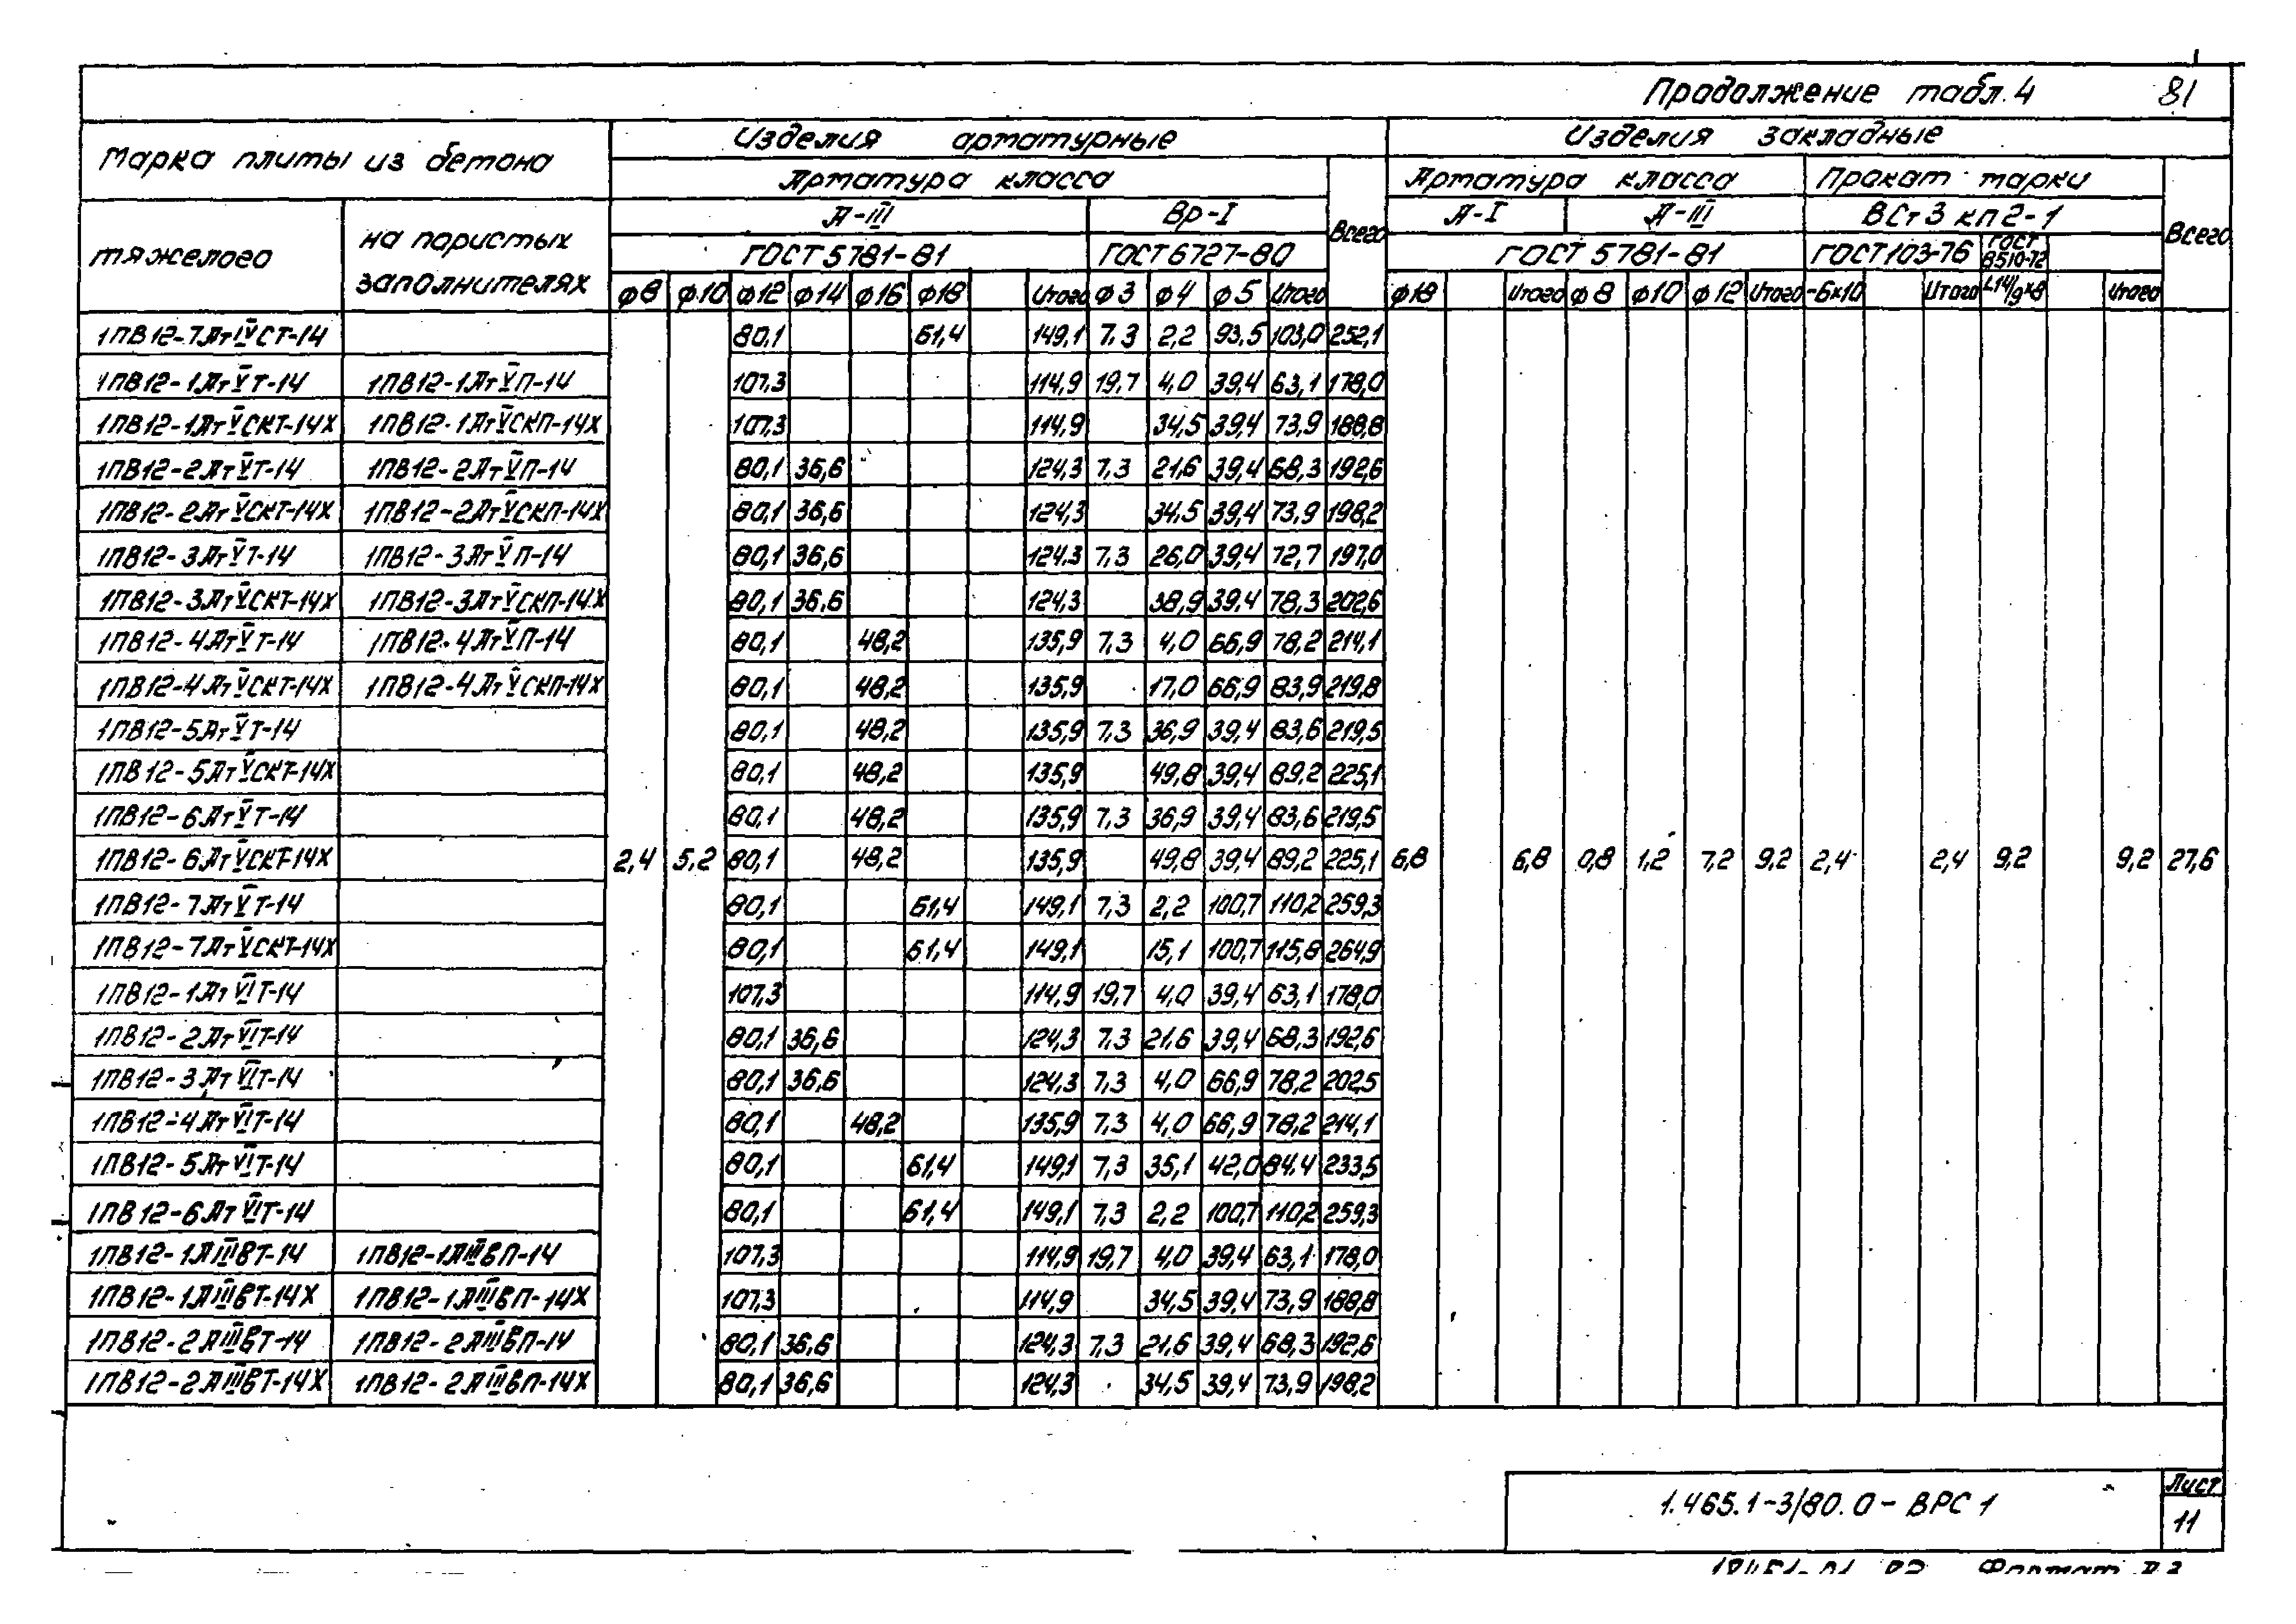 Продолжение табл. 4 81
Марка плиты из бетона Изделия арматурные Изделия закладные
Арматура класса Всего Арматура класса Прокат марки Всего
тяжелого на пористых заполнителях А-III Вр-I А-I А-III ВСт3кп2-1
ГОСТ 5781-81 ГОСТ 6727-80 ГОСТ 5781-81 ГОСТ 103-76 ГОСТ 8510-72
ф8 ф10 ф12 ф14 ф16 ф18 Итого ф3 ф4 ф5 Итого ф18 Итого ф8 ф10 ф12 Итого -6х10 Итого Итого
1ПВ12-7АтIVСТ-14 80,1 61,4 149,1 7,3 2,2 93,5 103,0 252,1
1ПВ12-1АтVТ-14 1ПВ12-1АтVП-14 107,3 114,9 19,7 4,0 39,4 63,1 178,0
1ПВ12-1АтVСКТ-14Х 1ПВ12-1АтVСКП-14Х 107,3 114,9 34,5 39,4 73,9 188,8
1ПВ12-2АтVТ-14 1ПВ12-2АтVП-14 80,1 36,6 124,3 7,3 21,6 39,4 68,3 192,6
1ПВ12-2АтVСКТ-14Х 1ПВ12-2АтVСКП-14Х 80,1 36,6 124,3 34,5 39,4 73,9 198,2
1ПВ12-3АтVТ-14 1ПВ12-3АтVП-14 80,1 36,6 124,3 7,3 26,0 39,4 72,7 197,0
1ПВ12-3АтVСКТ-14Х 1ПВ12-3АтVСКП-14Х 80,1 36,6 124,3 38,9 39,4 78,3 202,6
1ПВ12-4АтVТ-14 1ПВ12-4АтVП-14 80,1 48,2 135,9 7,3 4,0 66,9 78,2 214,1
1ПВ12-4АтVСКТ-14Х 1ПВ12-4АтVСКП-14Х 80,1 48,2 135,9 17,0 66,9 83,9 219,8
1ПВ12-5АтVТ-14 80,1 48,2 135,9 7,3 36,9 39,4 83,6 219,5
1ПВ12-5АтVСКТ-14Х 80,1 48,2 135,9 49,8 39,4 89,2 225,1
1ПВ12-6АтVТ-14 80,1 48,2 135,9 7,3 36,9 39,4 83,6 219,5
1ПВ12-6АтVСКТ-14Х 2,4 5,2 80,1 48,2 135,9 49,8 39,4 89,2 225,1 6,8 6,8 0,8 1,2 7,2 9,2 2,4 2,4 9,2 9,2 27,6
1ПВ12-7АтVТ-14 80,1 61,4 149,1 7,3 2,2 100,7 110,2 259,3
1ПВ12-7АтVСКТ-14Х 80,1 61,4 149,1 15,1 100,7 115,8 264,9
1ПВ12-1АтVIТ-14 107,3 114,9 19,7 4,0 39,4 63,1 178,0
1ПВ12-2АтVIТ-14 80,1 36,6 124,3 7,3 21,6 39,4 68,3 192,6
1ПВ12-3АтVIТ-14 80,1 36,6 124,3 7,3 4,0 66,9 78,2 202,5
1ПВ12-4АтVIТ-14 80,1 48,2 135,9 7,3 4,0 66,9 78,2 214,1
1ПВ12-5АтVIТ-14 80,1 61,4 149,1 7,3 35,1 42,0 84,4 233,5
1ПВ12-6АтVIТ-14 80,1 61,4 149,1 7,3 2,2 100,7 110,2 259,3
1ПВ12-1АIIIВТ-14 1ПВ12-1АIIIВП-14 107,3 114,9 19,7 4,0 39,4 63,1 178,0
1ПВ12-1АIIIВТ-14Х 1ПВ12-1АIIIВП-14Х 107,3 114,9 34,5 39,4 73,9 188,8
1ПВ12-2АIIIВТ-14 1ПВ12-2АIIIВП-14 80,1 36,6 124,3 7,3 21,6 39,4 68,3 192,6
1ПВ12-2АIIIВТ-14Х 1ПВ12-2АIIIВП-14Х 80,1 36,6 124,3 34,5 39,4 73,9 198,2
1.465.1-3/80.0-ВРС1 Лист
11
Формат